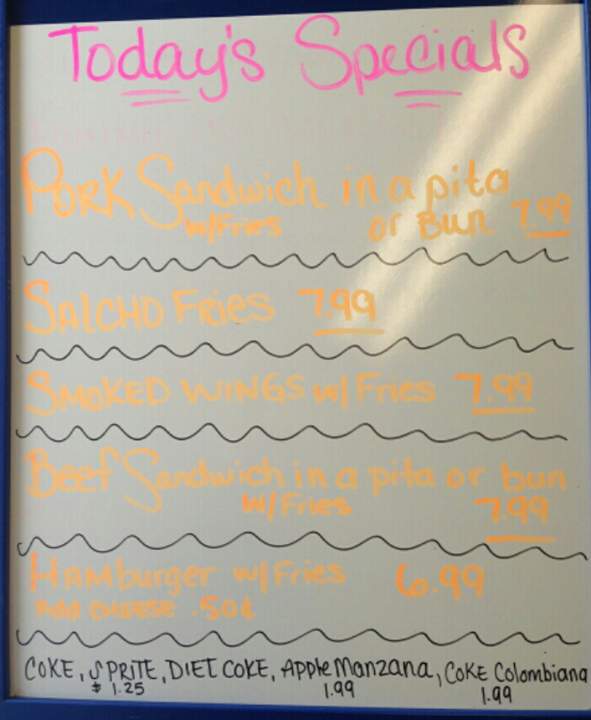 Today's Specials
PORK Sandwich in a pita
w/Fries or Bun 7.99
SALCHO Fries 7.99
SMOKED WINGS w/ Fries 7.99
Beef Sandwich in a pita or bun
w/ Fries 7.99
HAMburger w/ Fries 6.99
ADD CHEESE .50¢
COKE, SPRITE, DIET COKE, APPle Manzana, COKE Colombiana
$ 1.25 1.99 1.99